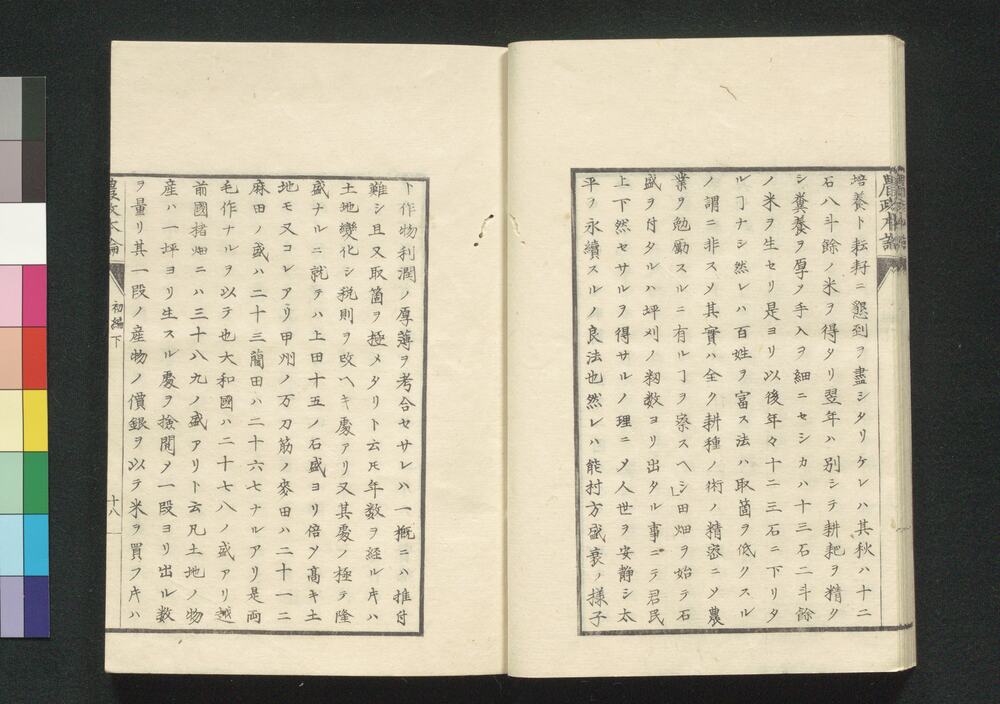 農政本論
培養ト耘耔ニ懇到ヲ盡シタリケレハ其秋ハ十二
石八斗餘ノ米ヲ得タリ翌年ハ別シテ耕耙ヲ精ク
シ糞養ヲ厚ク手入ヲ細ニセシカハ十三石二斗餘
ノ米ヲ生セリ是ヨリ以後年々十二三石ニ下リタ
ルヿナシ然レハ百姓ヲ富ス法ハ取箇ヲ低クスル
ノ謂ニ非スメ其實ハ全ク耕種ノ術ノ精密ニメ農
業ヲ勉勵スルニ有ルヿヲ察スヘシ田畑ヲ始テ石
盛ヲ付タルハ坪刈ノ籾数ヨリ出タル事ニテ君民
上下然セサルヲ得サルノ理ニメ人世ヲ安静シ太
平ヲ永續スルノ良法也然レハ能村方盛衰ノ様子
ト作物利潤ノ厚薄ヲ考合セサレハ一概ニハ推付
難シ且又取箇ヲ極メタリト云𪜈年数ヲ経ルキハ
土地變化シ税則ヲ改ヘキ處アリ又其處ノ極テ隆
盛ナルニ就テハ上田十五ノ石盛ヨリ倍メ髙キ土
地モ又コレアリ甲州ノ万刀筋ノ麥田ハ二十一二
麻田ノ盛ハ二十三藺田ハ二十六七ナルアリ是両
毛作ナルヲ以テ也大和國ハ二十七八ノ盛アリ越
前國楮畑ニハ三十八九ノ盛アリト云凡土地ノ物
産ハ一坪ヨリ生スル處ヲ撿閲メ一段ヨリ出ル数
ヲ量リ其一段ノ産物ノ價銀ヲ以テ米ヲ買フキハ
農政本論
初編下
十八